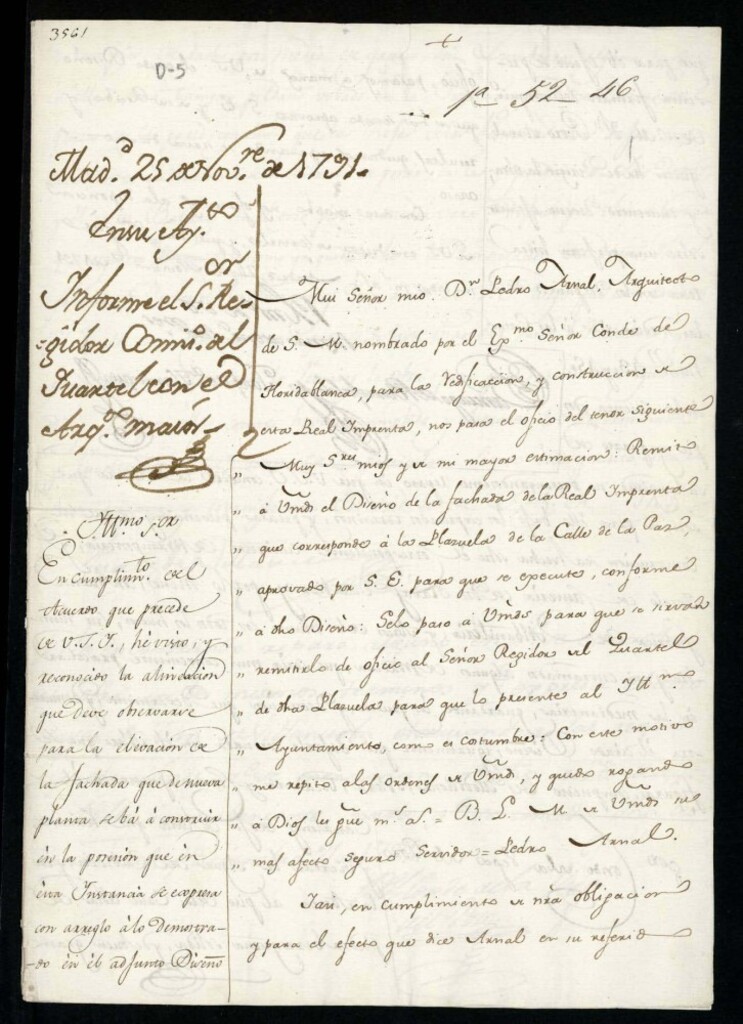 3561
D-5
1ª 52 46
Mad.d 25 de Nov.re de 1791.
En su Ay.to
Informe el S.or Re-
gidor Comis.o del
Quartel con el
Arq.to maior
Yltt.mo S.or
En cumplim.to del
Acuerdo que precede
de V.S.I., hé visto, y
reconocido la alineacion
que deve observarse
para la elevacion de
la fachada que de nueva
planta se bá á construir
en la posesion que en
esta Instancia se expresa
con arreglo á lo demostra-
do en el adjunto Diseño
Mui Señor mio. D.n Pedro Arnal, Arquitecto
de S. M. nombrado por el Ex.mo Señor Conde de
Floridablanca, para la Vedificacion, y construccion de
esta Real Imprenta, nos pasa el oficio del tenor siguiente
" Muy S.res mios y de mi mayor estimacion: Remito
" á Vmds el Diseño de la fachada de la Real Imprenta
" que corresponde á la Plazuela de la Calle de la Paz,
" aprovado por S. E. para que se execute, conforme
" á dho Diseño: Selo paso á Vmds para que se sirvan
" remitirlo de oficio al Señor Regidor del Quartel
" de dha Plazuela para que lo presente al Yltt.mo
" Ayuntamiento, como es costumbre: Con este motivo
" me repito a las ordenes de Vmds, y quedo rogando
" á Dios les gue m.s a.s = B. L. M. de Vmds su
" mas afecto seguro servidor = Pedro Arnal.
y para el efecto que dice Arnal en su referido